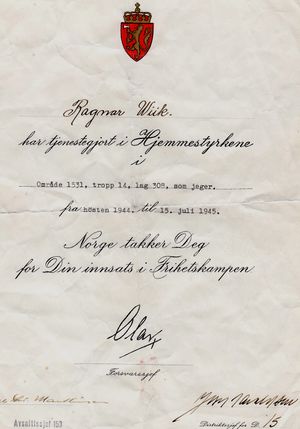 Ragnar Wiik.
har tjenestegjort i Hjemmestyrkene
i
Område 1531, tropp 14, lag 308, som jeger.
fra høsten 1944. til 15. juli 1945.
Norge takker Deg
for Din innsats i Frihetskampen
Olav
Forsvarssjef
Avsnittssjef 153
Distriktssjef for D. 15